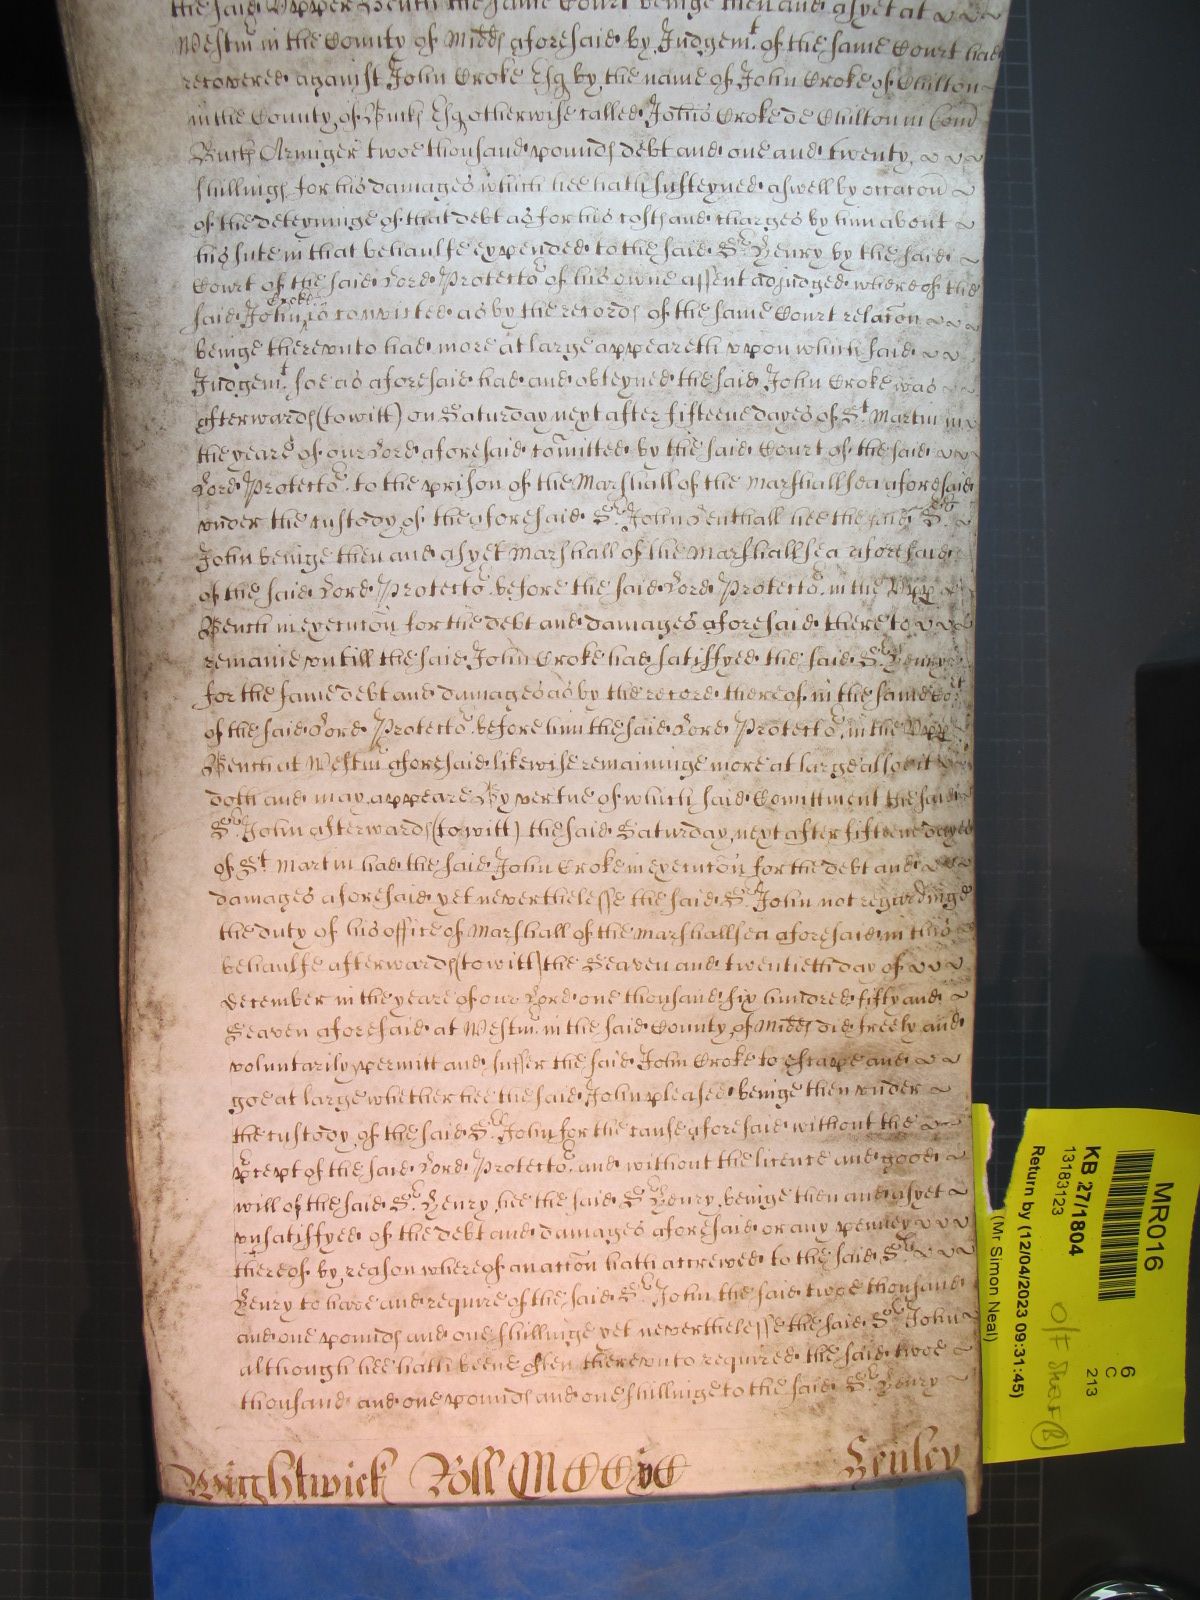 the said Upper Bench the same Court beinge then and as yet at
Westm in the County of Midds aforesaid by Judgemt of the same Court had
recovered against John Croke Esq by the name of John Croke of Chilton
in the County of Bucks Esq otherwise called Johes Croke de Chilton in Com
Buck Armiger twoe thousand pounds debt and one and twenty
shillings for his damages which hee hath susteyned aswell by occacon
of the deteyninge of that debt as for his costs and charges by him about
his sute in that behaulfe expended to the said Sr Henry by the said
Court of the said Lord Protector of his owne assent adjudged whereof the
said John Croke is convicted as by the record of the same Court relacon
beinge thereunto had more at large appeareth upon which said
Judgemt soe as aforesaid had and obteyned the said John Croke was
afterwards (to witt) on Saturday next after fifteene dayes of St Martin in
the yeare of our Lord aforesaid comitted by the said Court of the said
Lord Protector to the prison of the Marshall of the Marshallsea aforesaid
under the custody of the aforesaid Sr John Lenthall hee the said Sr
John beinge then and as yet Marshall of the Marshallsea aforesaid
of the said Lord Protector before the said Lord Protector in the Upp
Bench in execucon for the debt and damages aforesaid there to
remaine untill the said John Croke had satisfyed the said Sr Henry
for the same debt and damages as by the record thereof in the same Cort
of the said Lord Protector before him the said Lord Protector in the Upp
Bench at Westm aforesaid likewise remaininge more at large alsoe it
doth and may appeare By vertue of which said Comittment the said
Sr John afterwards (to witt) the said Saturday next after fifteene dayes
of St Martin had the said John Croke in execucon for the debt and
damages aforesaid yet neverthelesse the said Sr John not regardinge
the duty of his office of Marshall of the Marshallsea aforesaid in this
behaulfe afterwards (to witt) the Seaven and twentieth day of
december in the yeare of our Lord one thousand six hundred fifty and
Seaven aforesaid at Westm in the said County of Midds did freely and
voluntarily permitt and suffer the said John Croke to escape and
goe at large whether hee the said John pleased beinge then under
the custody of the said Sr John for the cause aforesaid without the
precept of the said Lord Protector and without the licence and good
will of the said Sr Henry hee the said Sr Henry beinge then and as yet
unsatisfyed of the debt and damages aforesaid or any penney
thereof by reason whereof an accon hath accrewed to the said Sr
Henry to have and require of the said Sr John the said twoe thousand
and one pounds and one shillinge yet neverthelesse the said Sr John
although hee hath beene often thereunto required the said twoe
thousand and one pounds and one shillinge to the said Sr Henry
Wightwick Roll MCC Henley
MR016
KB 27/1804
13183123
Return by (12/04/2023 09:31:45)
(Mr Simon Neal)
6
C
213